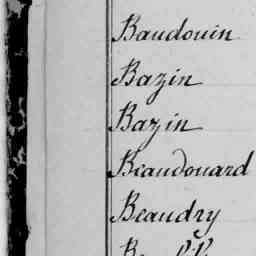 Baudouin
Bazin
Bazin
Beaudouard
Beaudry